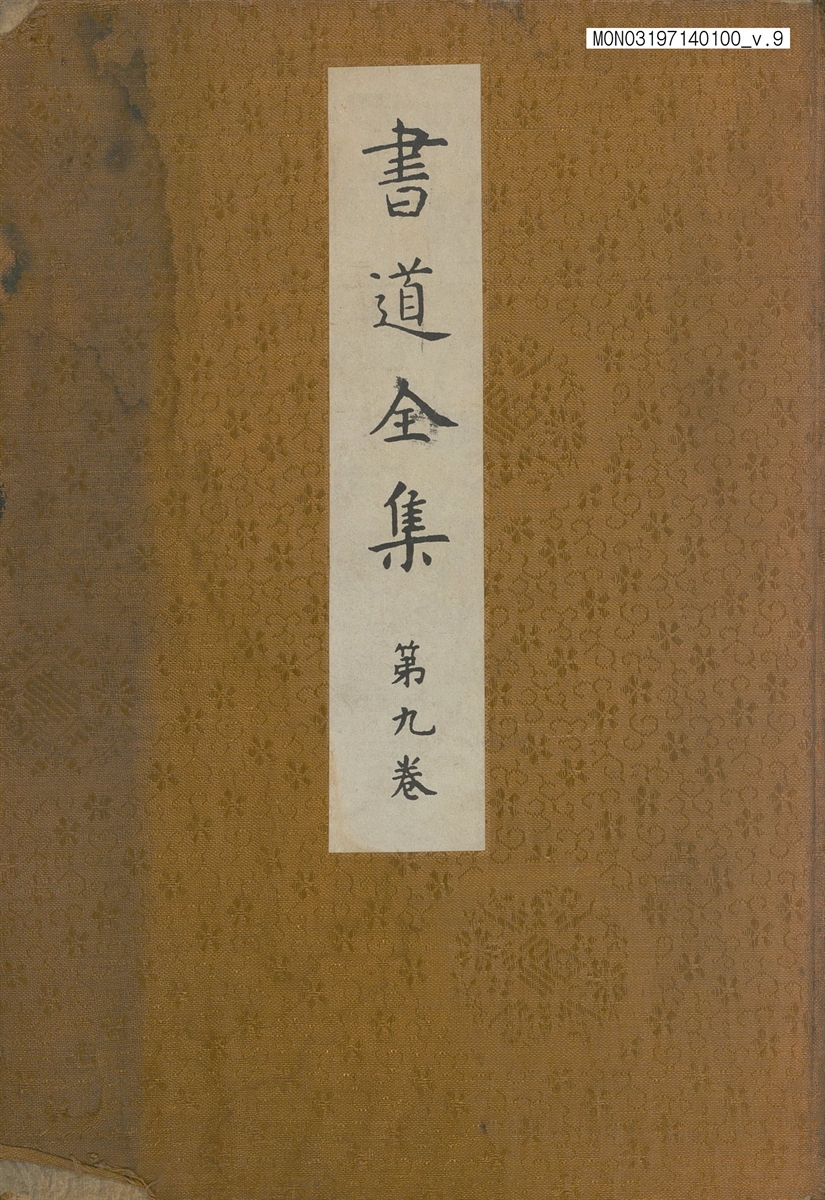 MONO3197140100_v.9
書道全集 第九卷